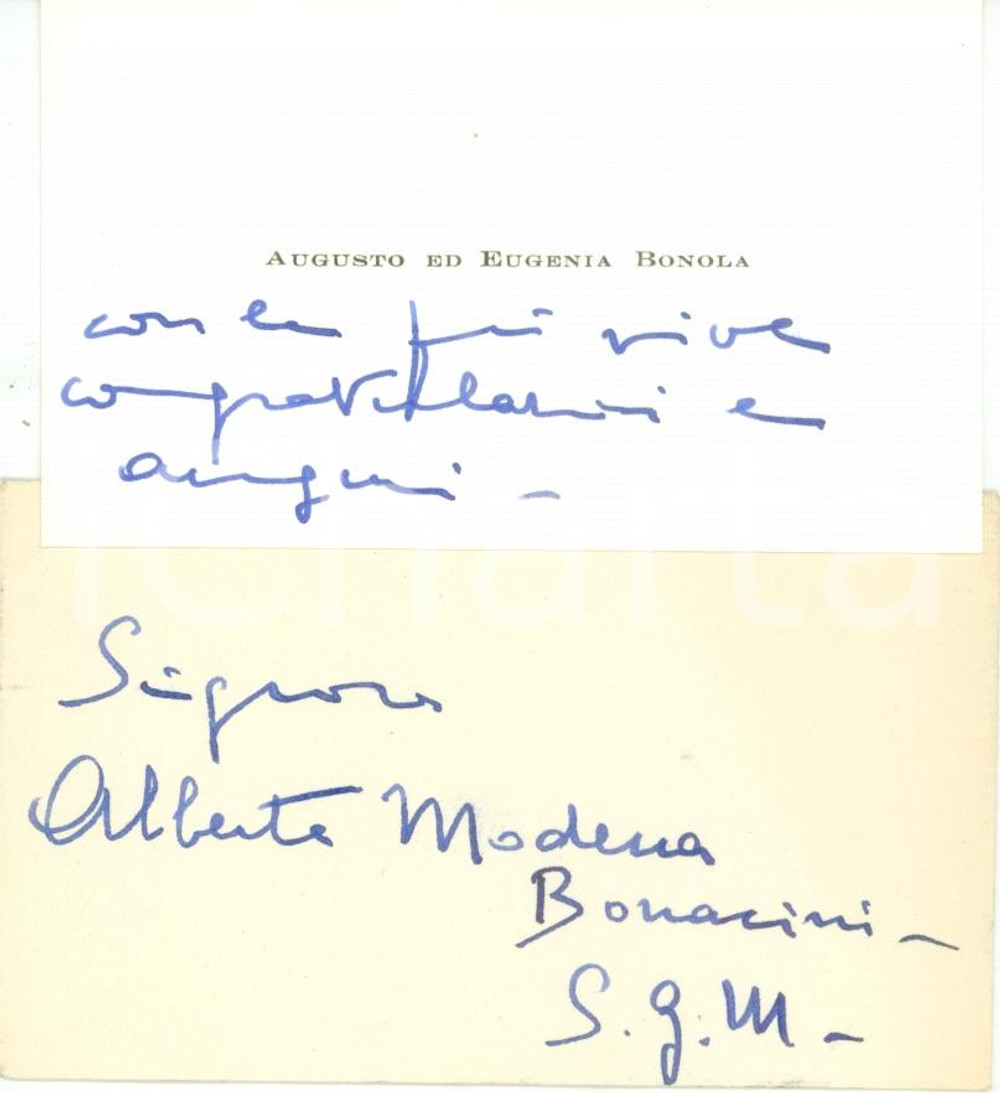 AUGUSTO ED EUGENIA BONOLA
con le più vive
congratulazioni e
auguri -
Signora
Alberta Modena
Bonacini -
S.G.M. -